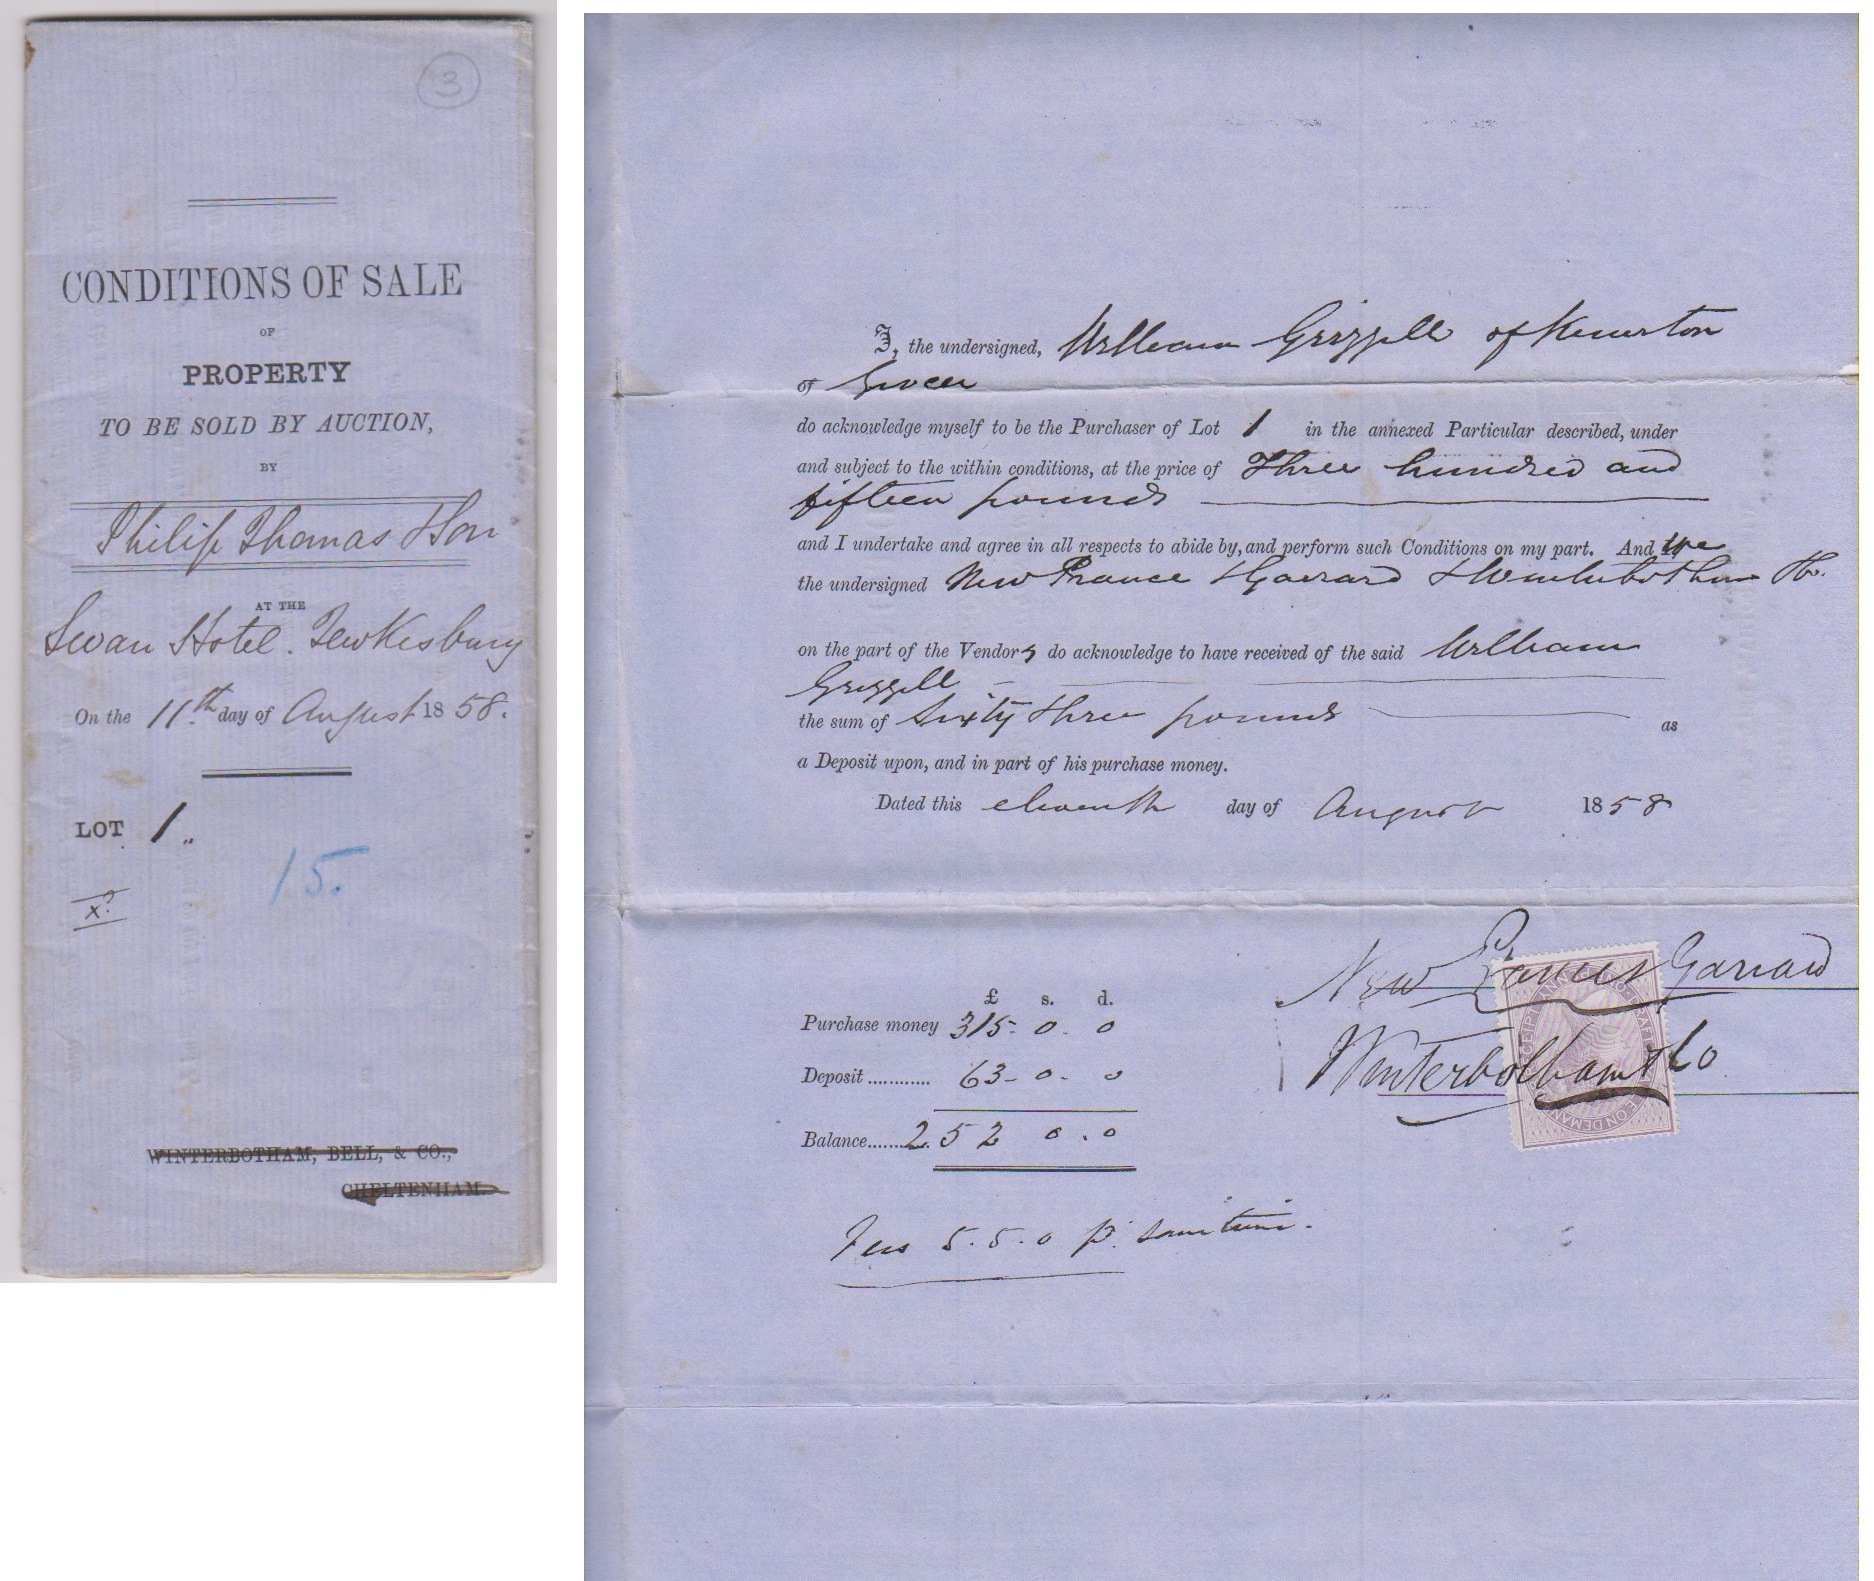 3
CONDITIONS OF SALE
OF
PROPERTY
TO BE SOLD BY AUCTION,
BY
Philip Thomas & Son
AT THE
Swan Hotel. Tewkesbury
On the 11.th day of August 1858.
LOT 1
15.
x?
WINTERBOTHAM, BELL, & CO.,
CHELTENHAM.
I, the undersigned, William Grizzell of Kemerton
of Grocer
do acknowledge myself to be the Purchaser of Lot 1 in the annexed Particular described, under
and subject to the within conditions, at the price of Three hundred and
fifteen pounds
and I undertake and agree in all respects to abide by, and perform such Conditions on my part. And We
the undersigned New Prance & Garrard & Winterbotham & Co.
on the part of the Vendors do acknowledge to have received of the said William
Grizzell
the sum of Sixty three pounds as
a Deposit upon, and in part of his purchase money.
Dated this eleventh day of August 1858
£ s. d.
Purchase money 315. 0. 0
Deposit ............ 63 - 0 - 0
Balance....... 252 0 . 0
New Prance & Garrard
Winterbotham & Co
RECEIPT DRAFT ON DEMAND
5. 5. 0